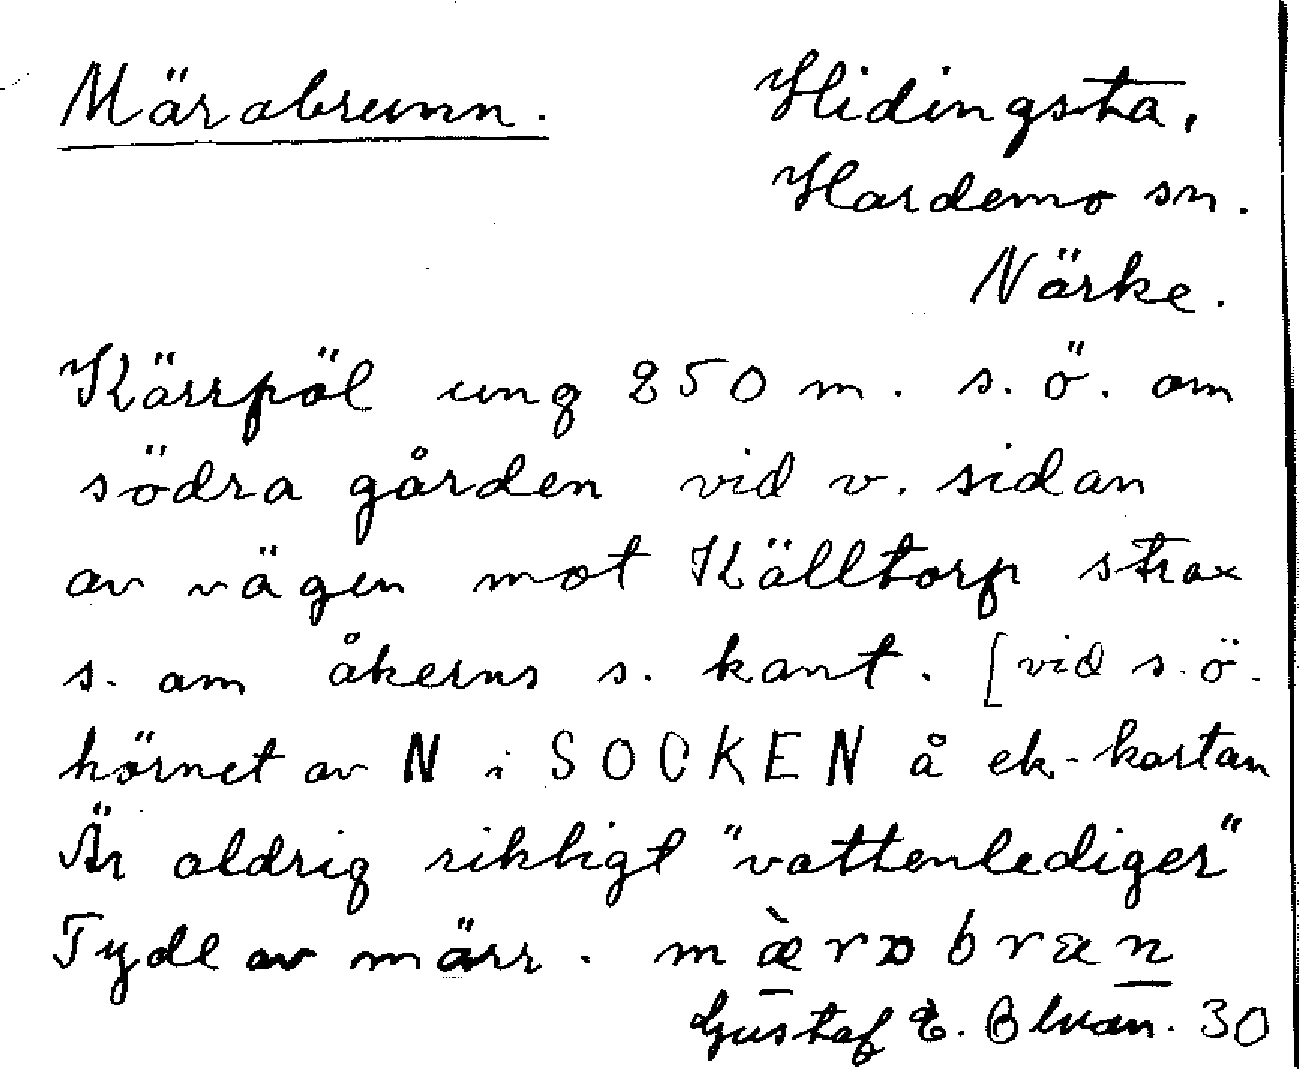 Märabrunn. Hidingsta,
Hardemo sn.
Närke.
Kärrpöl ung 250 m. s.ö. om
södra gården vid v. sidan
av vägen mot Källtorp strax
s. om åkerns s. kant. [vid s.ö.
hörnet av N i SOCKEN å ek-kartan
Är aldrig rikligt "vattenlediger"
Tydl av märr.
Gustaf E. 30